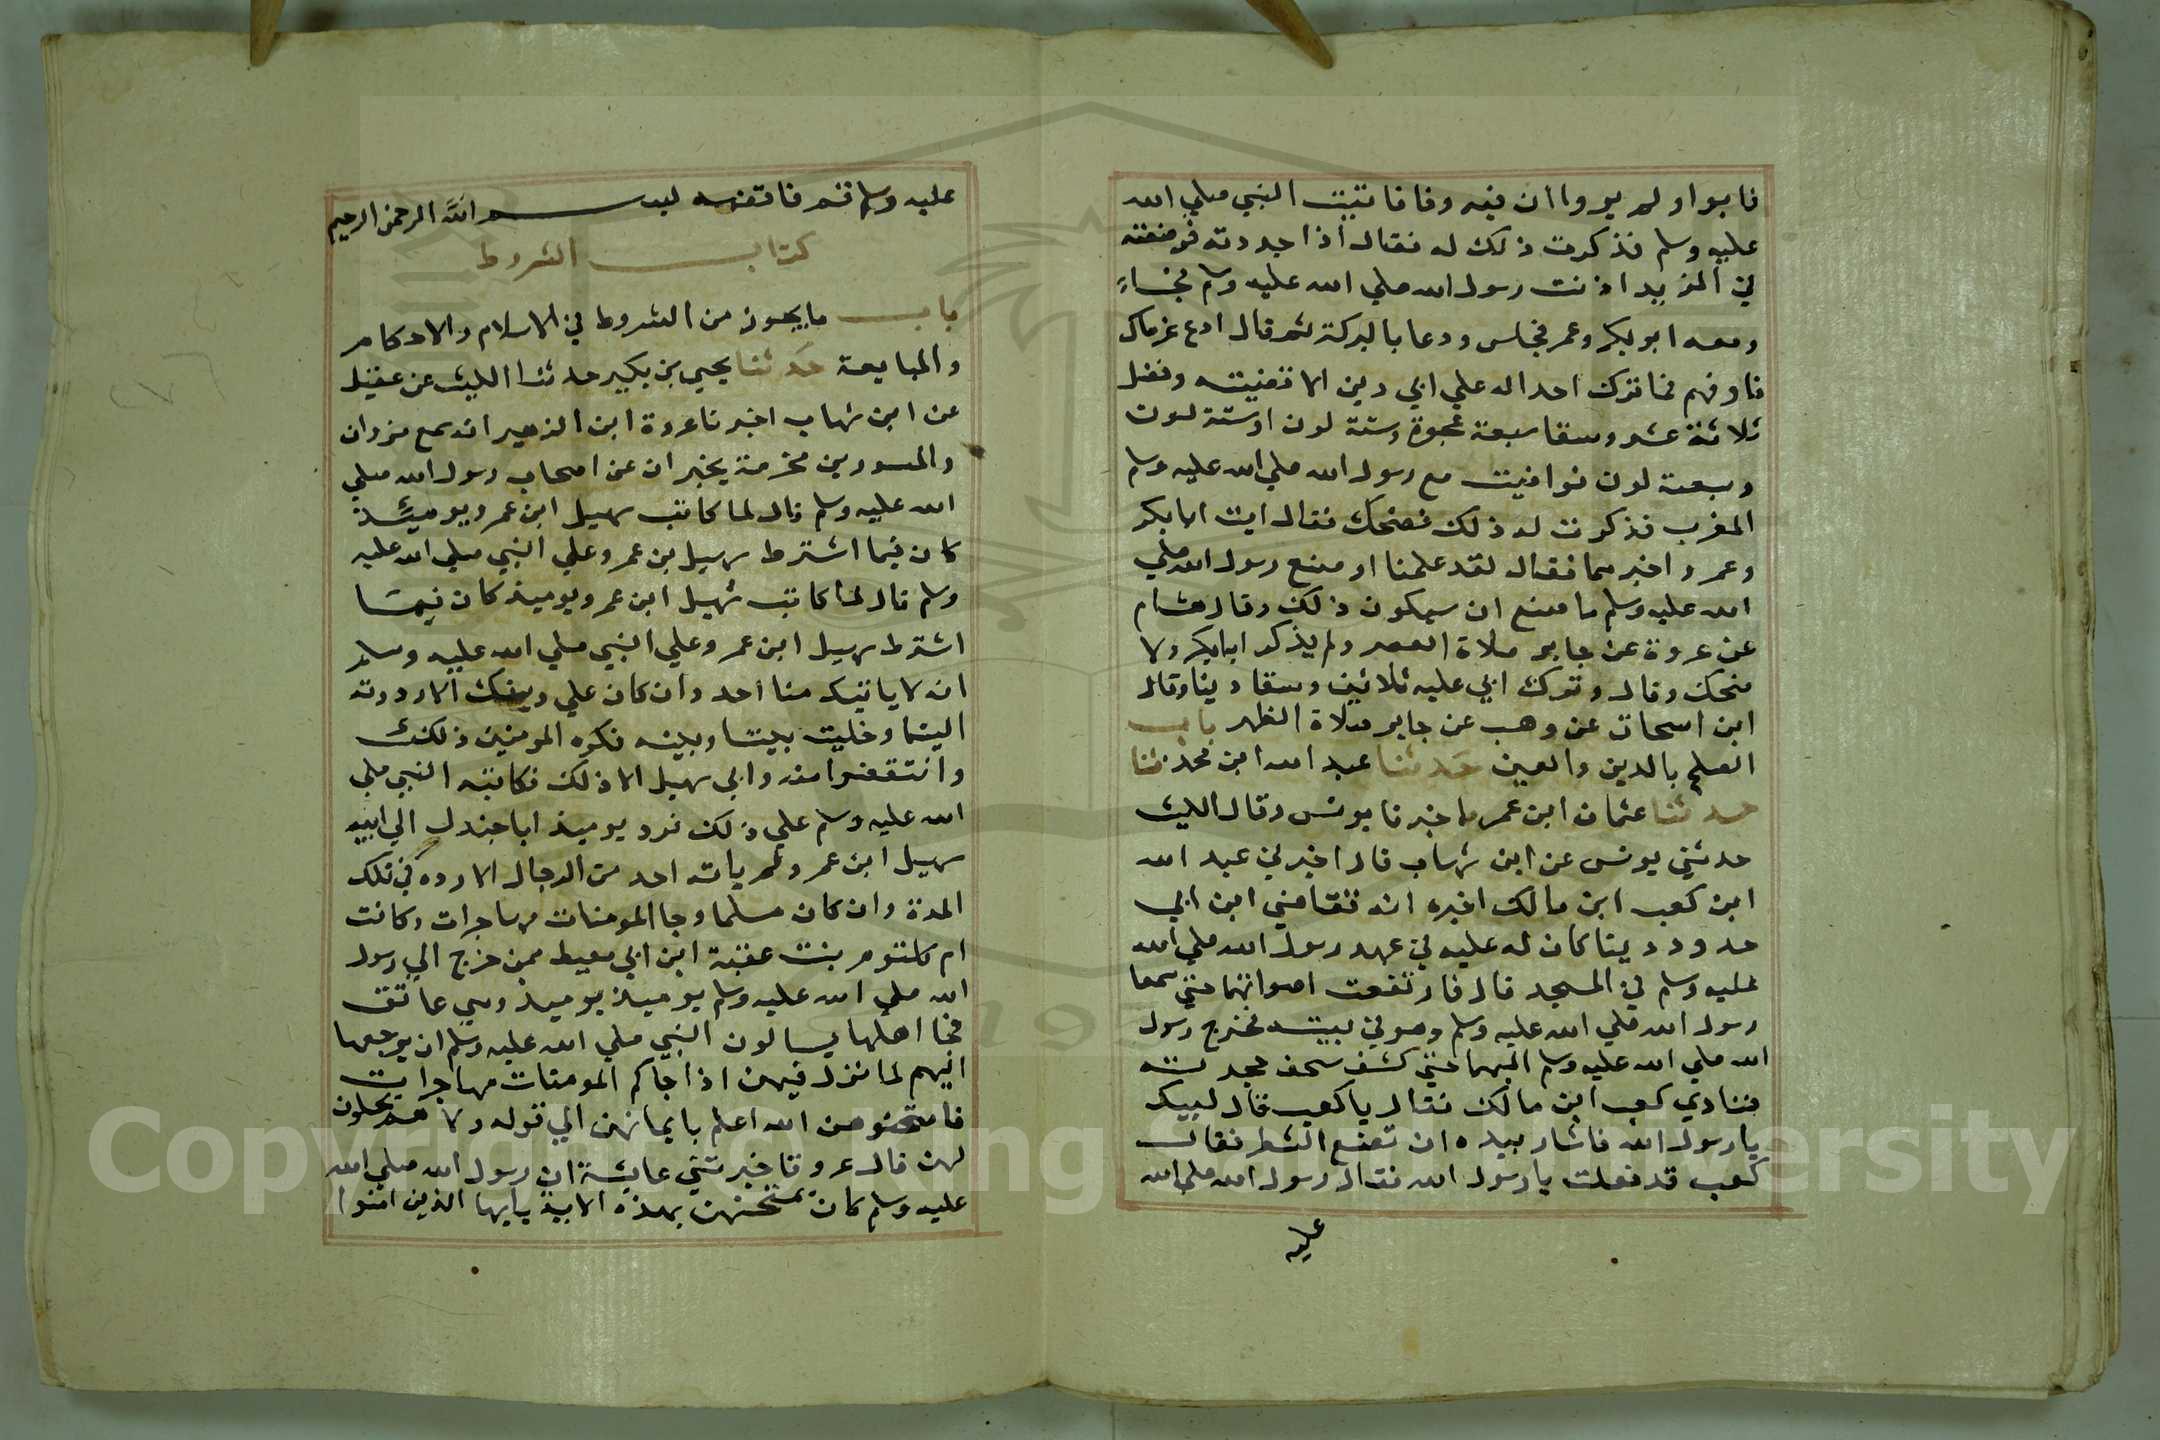 فابوا ولم يروا ان فيه وفا فاتيت النبي صلي الله
عليه وسلم فذكرت ذلك له فقال اذا جددته فوضعته
في المربد اذنت رسول الله صلي الله عليه وسلم فجاء
ومعه ابو بكر وعمر فجلس ودعا بالبركة ثم قال ادع غرماك
فاوفهم فما تركت احدا له علي ابي دين الا قضيته وفضل
ثلاثة عشر وسقا سبعة عجوة وستة لون او ستة لون
وسبعة لون فوافيت مع رسول الله صلي الله عليه وسلم
المغرب فذكرت له ذلك فضحك فقال ايت ابا بكر
وعمر واخبرهما فقال لقد علمنا اذ صنع رسول الله صلي
الله عليه وسلم ما صنع ان سيكون ذلك وقال هشام
عن عروة عن جابر صلاة العصر ولم يذكر ابا بكر ولا
ضحك وقال وترك ابي عليه ثلاثين وسقا دينا وقال
ابن اسحاق عن وهب عن جابر صلاة الظهر باب
الصلح بالدين والعين حدثنا عبد الله ابن محمد ثنا
حدثنا عثمان ابن عمر اخبرنا يونس وقال الليث
حدثني يونس عن ابن شهاب قال اخبرني عبد الله
ابن كعب ابن مالك اخبره انه تقاضي ابن ابي
حدود دينا كان له عليه في عهد رسول الله صلي الله
عليه وسلم في المسجد قال فارتفعت اصواتهما حتي سمعا
رسول الله صلي الله عليه وسلم وهو في بيته فخرج رسول
الله صلي الله عليه وسلم اليهما حتي كشف سجف حجرته
فنادي كعب ابن مالك فقال يا كعب قال لبيك
يا رسول الله فاشار بيده ان تضع الشطر فقال
كعب قد فعلت يا رسول الله فقال رسول الله صلي الله
عليه
عليه وسلم قم فاقضه بسم الله الرحمن الرحيم
كتاب الشروط
باب ما يجوز من الشروط في الاسلام والاحكام
والمبايعة حدثنا يحيي بن بكير حدثنا الليث عن عقيل
عن ابن شهاب اخبرنا عروة ابن الزهير انه سمع مروان
والمسور بن مخرمة يخبران عن اصحاب رسول الله صلي
الله عليه وسلم قال لما كاتب سهيل ابن عمر ويوميئذ
كان فيما اشترط سهيل بن عمرو علي النبي صلي الله عليه
وسلم قال لما كاتب سهيل ابن عمر ويوميذ كان فيما
اشترط سهيل ابن عمرو علي النبي صلي الله عليه وسلم
انه لا ياتيك منا احد وان كان علي دينك الا رددته
الينا وخليت بيننا وبينه فكره المومنين ذلك
وانتقضوا منه وابي سهيل الا ذلك فكاتبه النبي صلي
الله عليه وسلم علي ذلك فرد يوميذ ابا جندل الي ابيه
سهيل ابن عمر ولم ياته احد من الرجال الا رده في تلك
المدة وان كان مسلما وجا المومنات مهاجرات وكانت
ام كلثوم بنت عقبة ابن ابي معيط ممن خرج الي رسول
الله صلي الله عليه وسلم يوميذ يوميذ وهي عاتق
فجا اهلها يسالون النبي صلي الله عليه وسلم ان يرجعها
اليهم لما نزل فيهن اذا جاكم المومنات مهاجرات
فامتحنوهن الله اعلم بايمانهن الي قوله ولا هم يحلون
لهن قال عروة فاخبرتني عايشة ان رسول الله صلي الله
عليه وسلم كان يمتحنهن بهذه الاية يايها الذين امنوا
Copyright © King Saud University